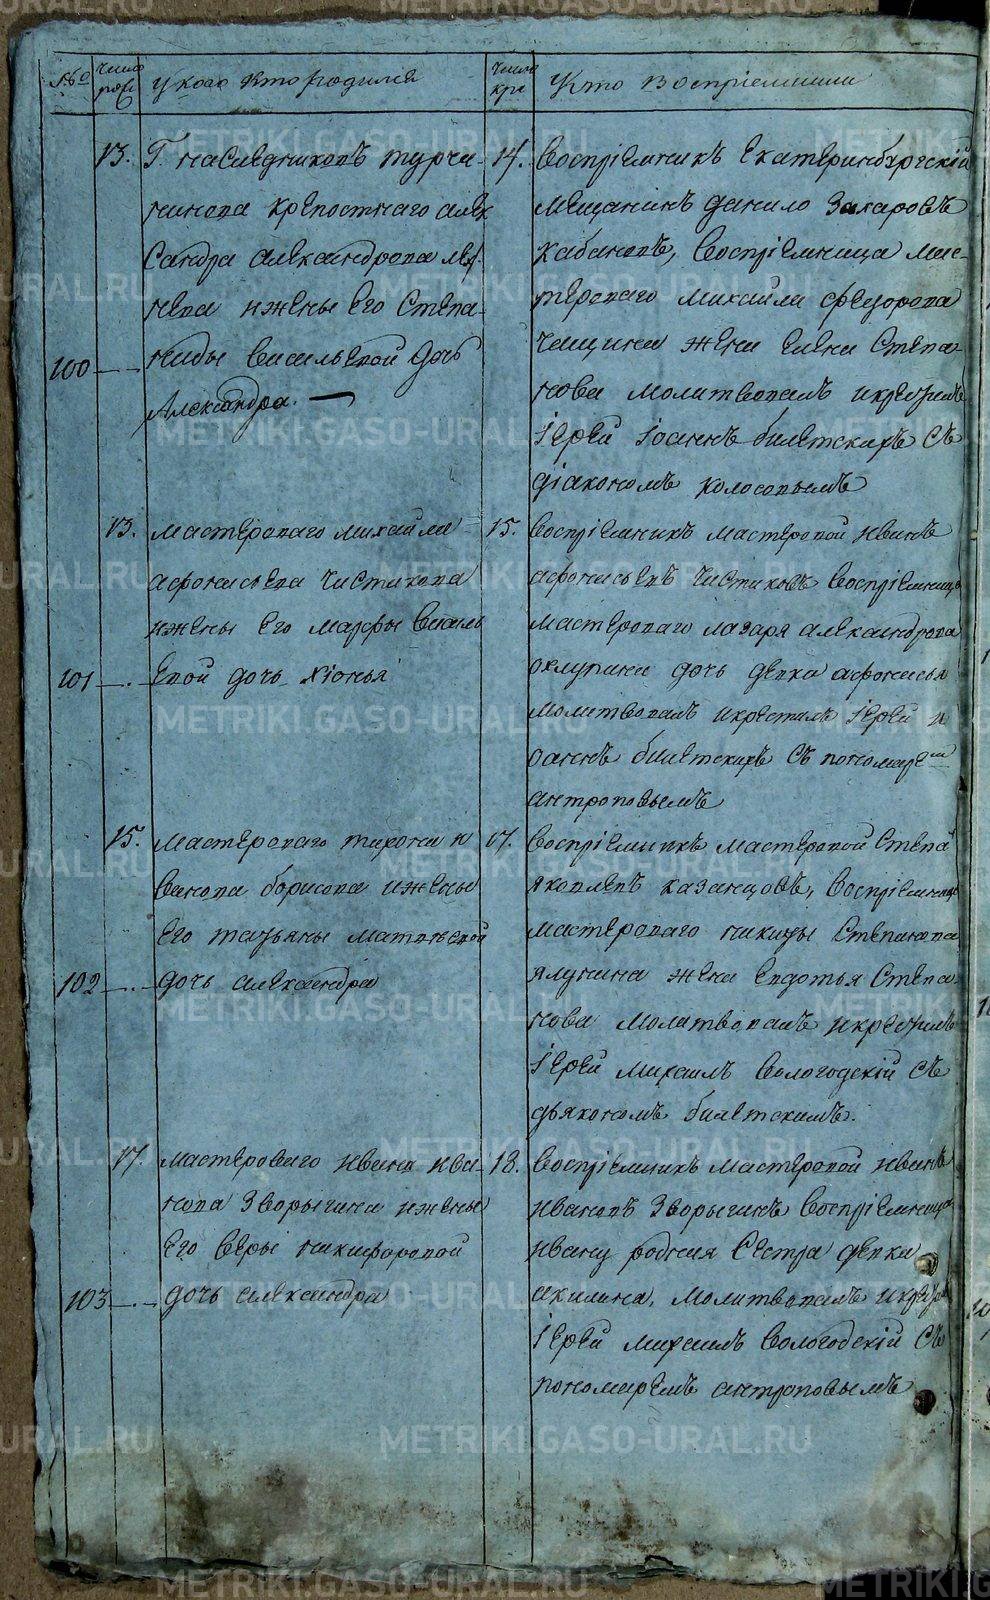 число рож
у кого кто родился
число кре
Кто воспріемники
13.
Г. наследниковъ турча-
нинова крепостнаго алек
сандра александрова
нева и жены его степа-
ниды васильевой дочь
Александра.
100
14.
воспріемникъ екатеринбургскій
мещанинъ данило захаровъ
кабановъ, воспріемница мас-
тероваго михаила федорова
чащина жена елена степа-
нова молитвовалъ и крестилъ
іерей іоаннъ билетскихъ съ
діакономъ колосовымъ
13.
мастероваго михаила
афонасьева чистякова
и жены его марфы василь
евой дочь хіонья
101
15.
воспріемникъ мастеровой иванъ
афонасьевъ чистяковъ воспріемница
мастероваго лазаря александрова
охлупина дочь девка афонасья
молитвовалъ и крестилъ іерей и
оаннъ билетскихъ съ пономаремъ
антроповымъ
15.
мастероваго тихона и
ванова борисова и жены
его татьяны матвеевой
дочь александра
102
17.
воспріемникъ мастеровой степа
яковлевъ казанцовъ, воспріемница
мастероваго никиты степанова
ялунина жена евдотья степа-
нова молитвовалъ и крестилъ
іерей михаилъ вологодскій съ
дьякономъ билетскимъ.
17.
мастероваго ивана ива-
нова зворыгина и жены
его веры никифоровой
дочь александра
103
18.
воспріемникъ мастеровой иванъ
ивановъ зворыгинъ воспріемница
ивану родная сестра девка
акилина, молитвовалъ и крестилъ
іерей михаилъ вологодскій съ
пономаремъ антроповымъ
METRIKI.GASO-URAL.RU